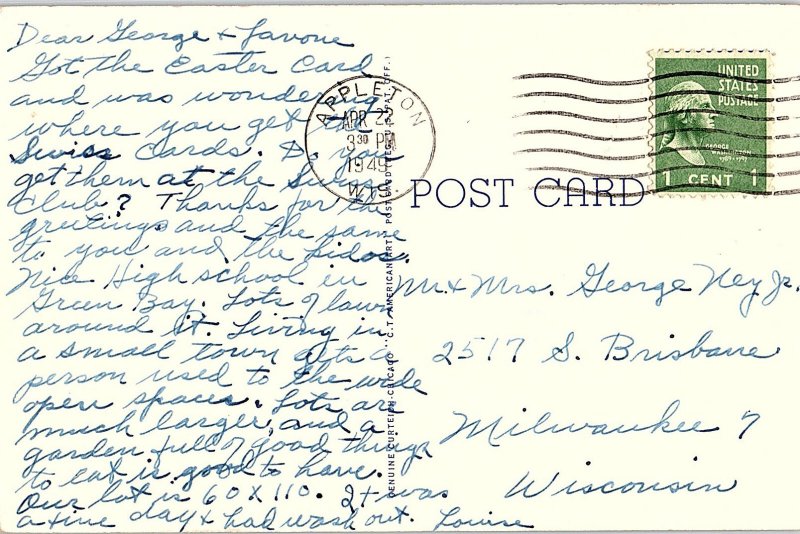 Dear George & Lavone
Got the Easter Card
and was wondering
where you get the
Swiss Cards. Do you
get them at the Swiss
Club? Thanks for the
greetings and the same
to you and the kiddo.
Nice High school in
Green Bay. Lots of lawn
around it. Living in
a small town gets a
person used to the wide
open spaces. Lots are
much larger, and a
garden full of good things
to eat is good to have.
Our lot is 60 x 110. It was
a fine day & had wash out. Louise
GENUINE CURTEICH-CHICAGO "C.T. AMERICAN ART" POST CARD (REG. U.S. PAT. OFF.)
APPLETON
APR 22
3 30 PM
1949
WIS.
UNITED
STATES
POSTAGE
GEORGE
WASHINGTON
1 CENT 1
POST CARD
Mr. & Mrs. George Ney Jr.
2517 S. Brisbane
Milwaukee 7
Wisconsin